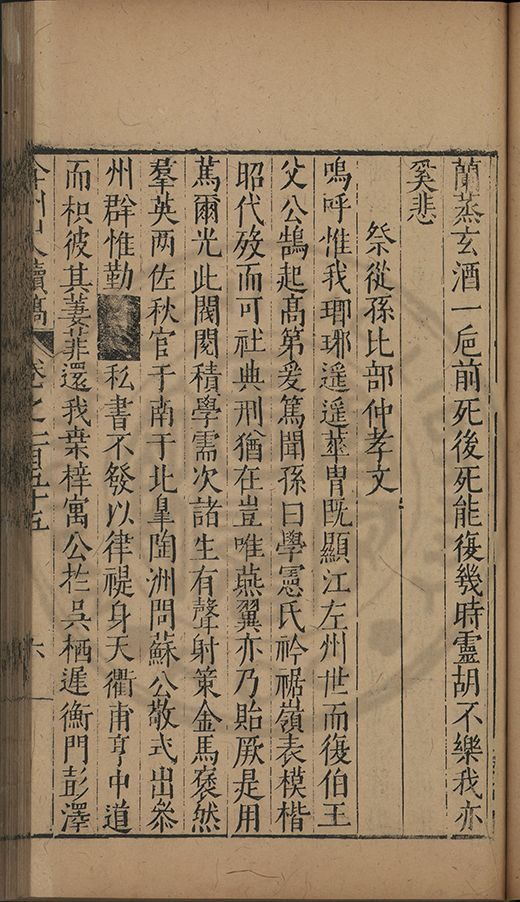 蘭蒸玄酒一卮前死後死能復幾時靈胡不樂我亦
奚悲
祭從孫比部仲孝文
嗚呼惟我瑯琊遥遥華冑既顯江左州世而復伯王
父公鵠起高第爰篤聞孫曰學憲氏衿裾嶺表模楷
昭代歿而可社典刑猶在豈唯燕翼亦乃貽厥是用
篤爾光此閥閱積學需次諸生有聲射策金馬褒然
羣英两佐秋官于南于北臯陶洲問蘇公敬式出叅
州群惟勤私書不發以律禔身天衢甫亨中道
而枳彼其萋菲還我桑梓寓公於吳栖遲衡門彭澤
弇州山人續稿 卷之一百五十五 六